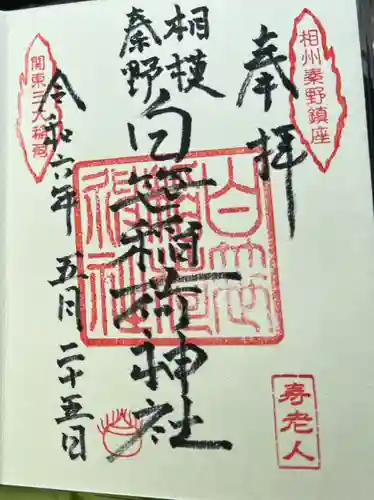 奉拝
相州秦野鎮座
相模
秦野
白笹稲荷神社
関東三大稲荷
令和六年 五月 二十五日
寿老人